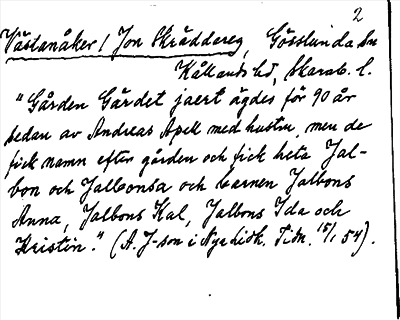 2
Västanåker / Jon Skräddareg, Gösslunda sn
Kållands hd, Skarab. l.
"Gården Gärdet jaert ägdes för 90 år
sedan av Andreas Apell med hustru, men de
fick namn efter gården och fick heta Jal-
bon och Jalbonsa och barnen Jalbons
Anna, Jalbons Kal, Jalbons Ida och
Kristin." (A. J-son i Nya Lidk. Tidn. 15/1 54).